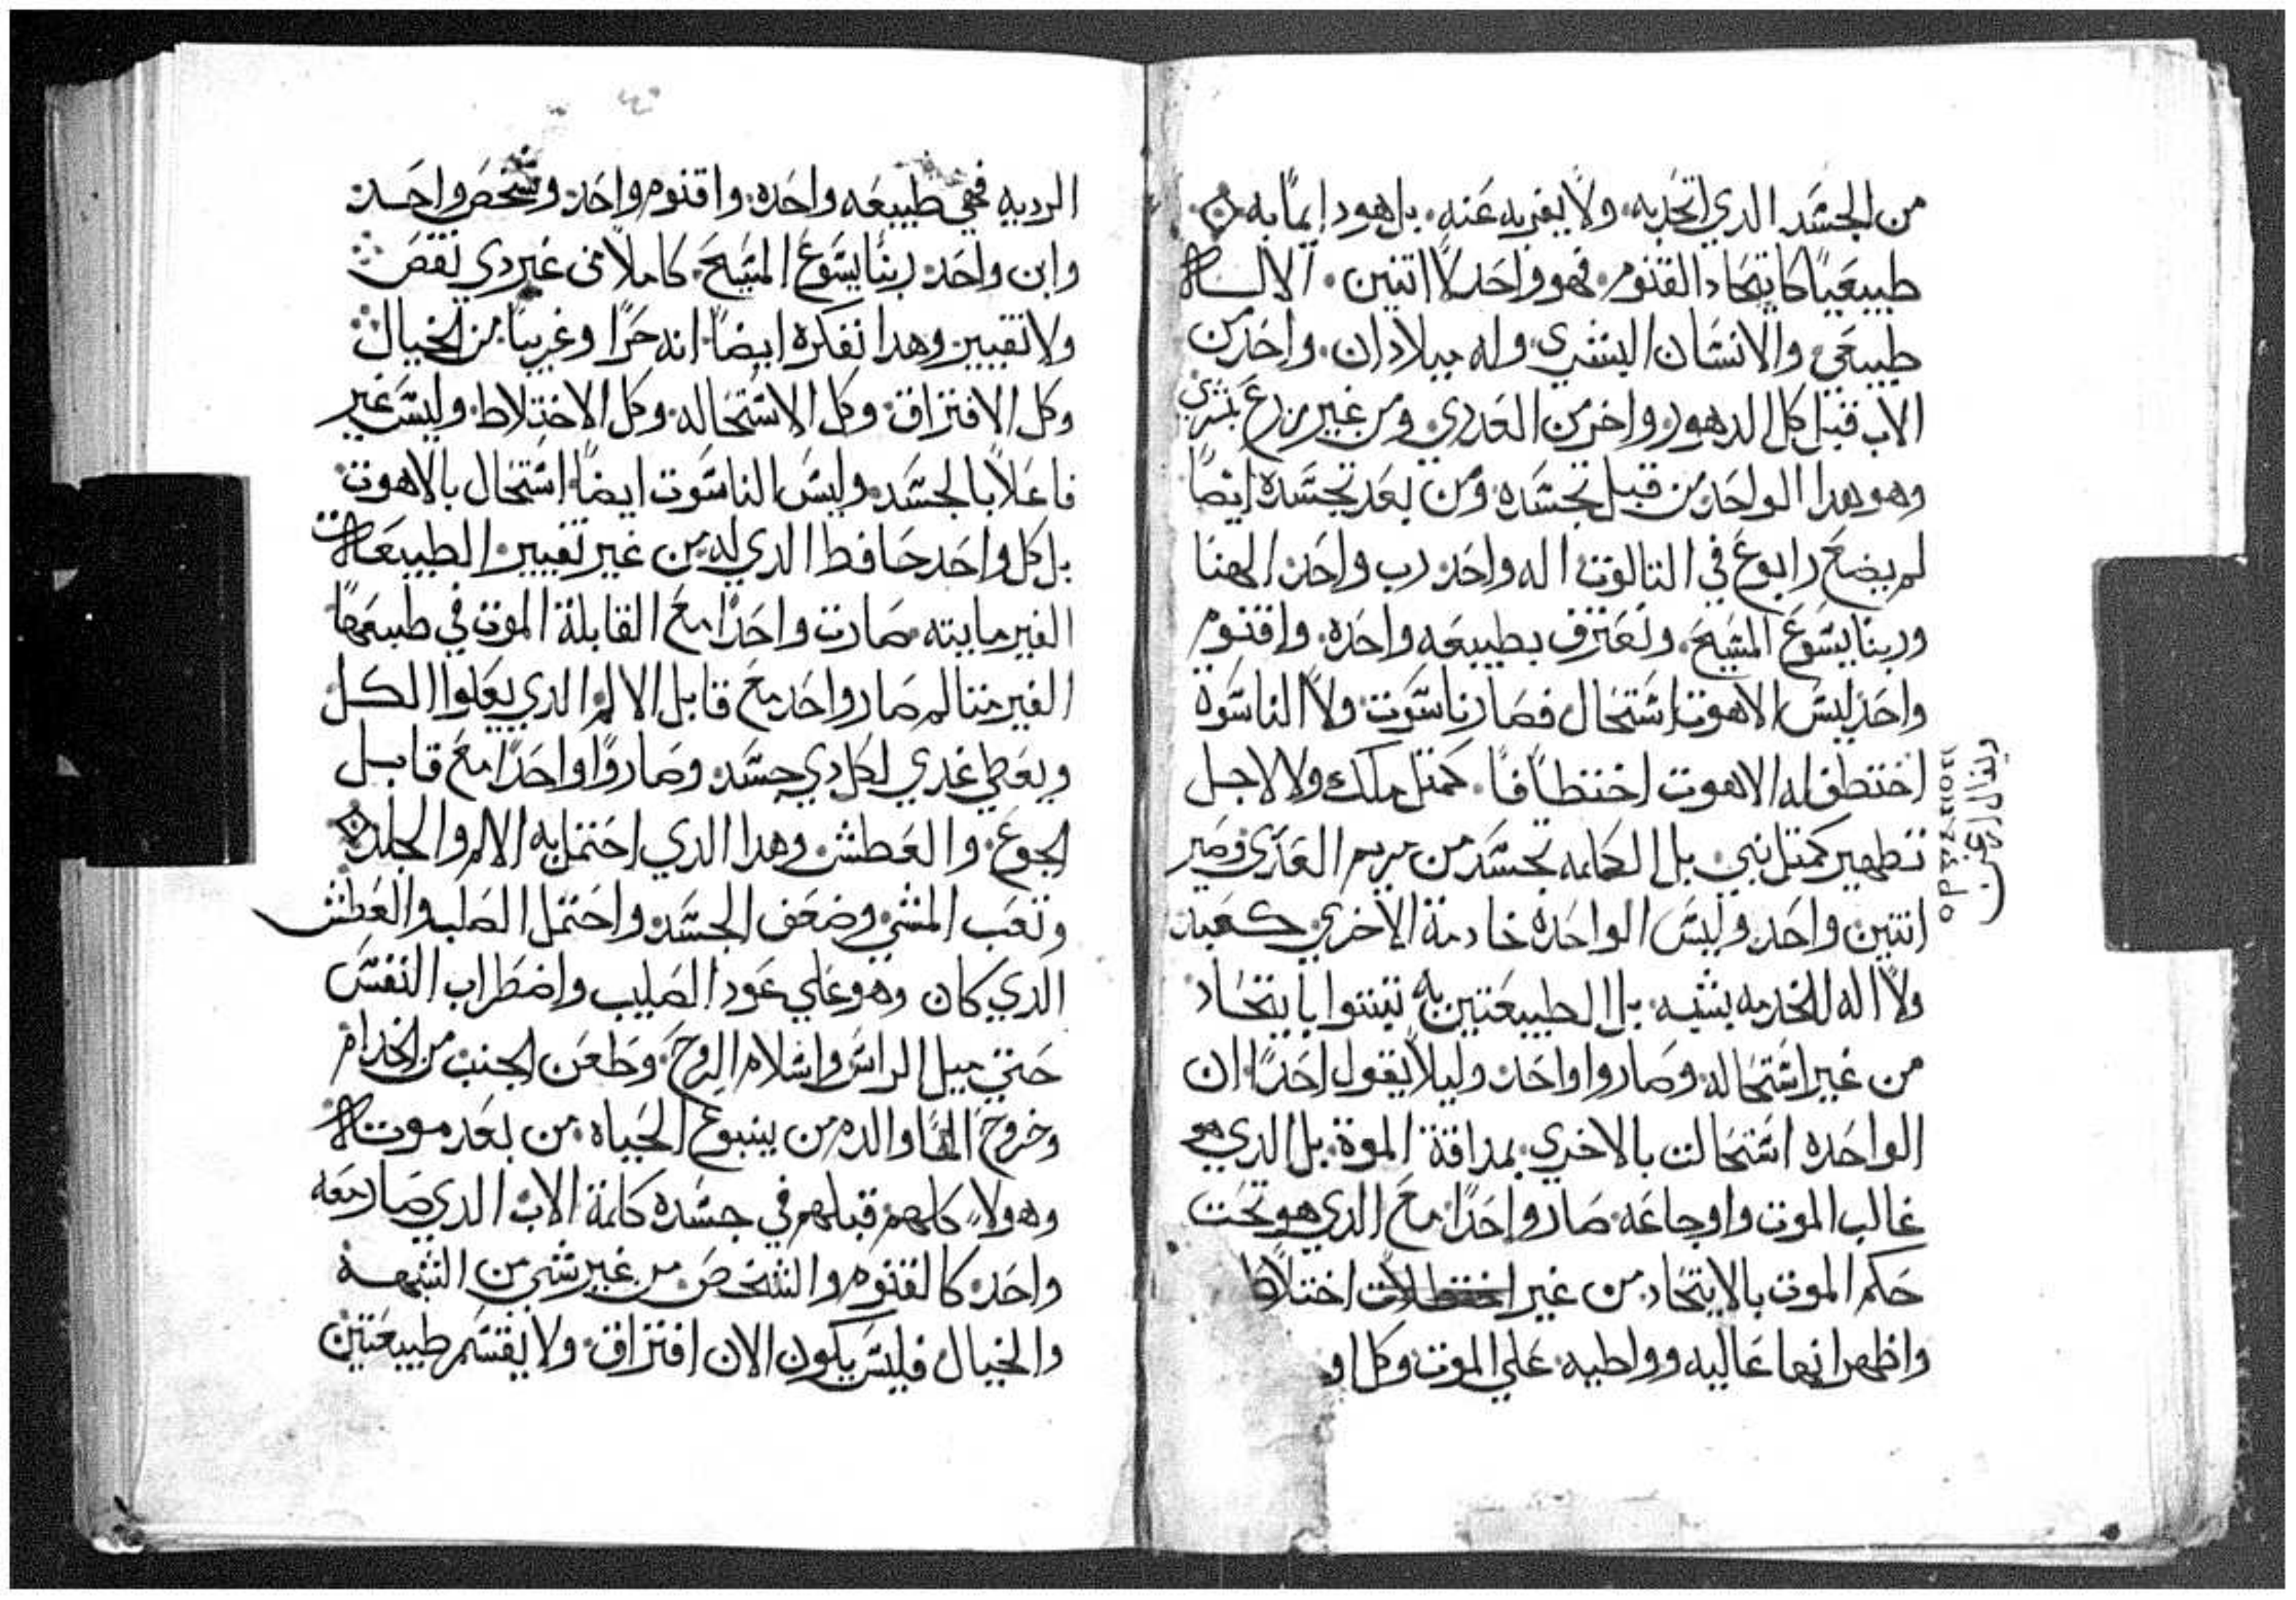 من الجسَد الدي اتحَد به، ولا يفتر به عَنه، بل هو دايمًا به
طبيعَيًا كاتِحَاد القنوم، فهو واحَد لا اتنين، الالـــاه
طبيعَي والانسَان البشري، وله ميلادان، واحَد من
الاب قبل كل الدهور، واخر من العَدري، ومن غير زرعَ بشري
وهو هدا الواحَد من قبل تجسَده، ومن بعَد تجسَده ايضًا
لم يضعَ رابوعَ في التالوت، اله واحَد، رب واحَد، الهنا
وربنا يسَوعَ المسَيحَ، ونعَترف بطبيعَه واحَده، واقنوم
واحَد ليسَ الاهوت اسَتحَال فصَار ناسَوت، ولا الناسَوة
اختطف له الاهوت اختطافًا، كمتل ملك ولا لاجل
تطهير كمتل نبي، بل الكلمه تجسَد من مريم العَدري وصَير
اتنين واحَد، وليسَ الواحَده خادمة الاخري كعَبد
ولا اله للخدمه يشبه، بل الطبيعَتين به تبتوا باتِحَاد
من غير اسَتحَاله، وصَاروا واحَد، وليلا يقول احَدًا ان
الواحَده اسَتحَالت بالاخري، بمداقة الموة، بل الدي هو
غالب الموت واوجاعَه، صَار واحَدًا معَ الدي هو تحَت
حَكم الموت بالايتحَاد، من غير اختلاط
واظهر انها عَاليه وواطيه، عَلي الموت وكل او
ربنا الراعي
الرديه فهي طبيعَه واحَده، واقنوم واحَد، وشخصَ واحَـد
وابن واحَد، ربنا يسَوعَ المسَيحَ، كاملا من غير دي نقصَ
ولا تغيير، وهدا نفكره ايضًا، انه حَرًا وغريبًا، من الخيال
وكل الافتراق، وكل الاسَتحَاله، وكل الاختلاط، وليسَ غير
فاعَلا بالجسَد، وليسَ الناسَوت ايضًا، اسَتحَال بالاهوت
بل كل واحَد حَافظ الدي له، من غير تغيير، الطبيعَاة
الغير مايته، صَارت واحَدًا معَ القابلة الموت في طبيعَتها
الغير متالم صَار واحَد معَ قابل الالم، الدي يعَلوا الكل
ويعَطي غدي لكل دي جسَد، وصَاروا واحَدًا معَ قابـل
الجوعَ، والعَطش، وهدا الدي احَتمل به الالم والجلد
وتعَب المشي، وضعَف الجسَد، واحَتمل الصَلب والعَطش
الدي كان وهو عَلي عَود الصَليب، واضطراب النفسَ
حَتي ميل الراسَ واسَلام الروحَ، وطعَن الجنب، من الخدام
وخروجَ الما والدم من ينبوعَ الحَياه، من بعَد موتـاه
وهولا كلهم قبلهم في جسَده، كلمة الاب، الدي صَار معَه
واحَد، كالقنوم والشخصَ، من غير شي من الشبهـه
والخيال، فليسَ يكون الان افتراق، ولا يقسَم طبيعَتين